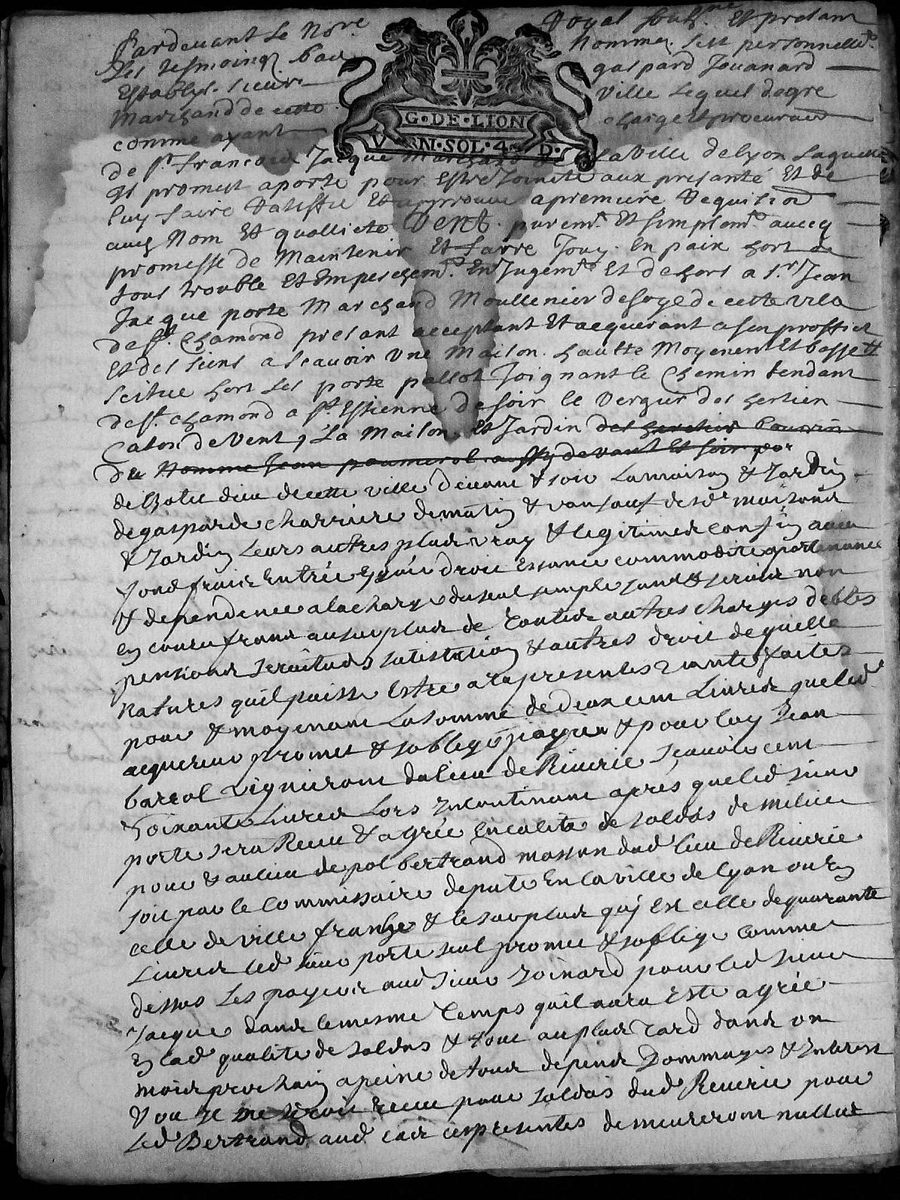 Pardevant Le Nore Royal soubne Et presant
Les tesmoingz bas nommez sest personnellet
Establys sieur gaspard Jouanard
Marchand de cette ville Lequel de gre
comme ayant charge et procuraon
G·DE·LION
VN·SOL·4·D·
de sr. Francois Jacque Marchand de La ville de Lyon Laquelle
Il promet aporte pour Estre Jointe aux presante Et de
Luy faire Ratiffie Et approuve a premiere Requision
aud Nom Et quallite Vent puremt Et simplemt avecq
promesse de Maintenir Et faire Jouy En paix hors de
tous trouble Et Empeschemt En Jugemt Et dehors a sr Jean
Jacque porte Marchand Moullenier de soye de cette ville
de st. Chamond presant acceptant Et acquerant a son proffict
Et des siens a scavoir Une Maison haulte Moyenne Et basse
scitue hors Les porte pallot Joignant le Chemin tendant
de st. chamond a st Estienne de soir le Verger des heritiers
Caton de Vent, La Maison Et Jardin des heritier
du Homme Jean paumerol aussy de vant Et soir par
de Lotie dieu de cette ville de vant & soir La maison & Jardin
de gasparde charriere de matin & vant sauf desd maisons
& Jardin Leurs autres plus vray & legitimes confins avec
fond frais Entrée Essuie droit Essance commodité apartenance
& dependence a la charge du seul simple fond & servis non
En cour franc au surplus de toutes autres charges debtes
pensions servitudes substitution & autres droit de quelle
natures quil puisse Estre a la presentes vante faites
pour & moyenant La somme de deux cent Livres que led
acquereur promet & soblige payer & pour luy Jean
barrol vigneron du lieu de Riverie scavoir cent
soixante Livres Lors Incontinant apres que led sieur
porte sera Receu & agrée En calité de soldas de milice
pour & au lieu de pol bertrand masson dud lieu de Riverie
soit par le Commissaire deputé En la ville de Lyon ou En
celle de ville franche & le surplus quj Est celle de quarante
Livres led sieur porte seul promet & soblige comme
dessus Les payer aud sieur Joinard pour led sieur
Jacque dans le mesme temps quil aura Esté agrée
En lad qualité de soldas & tout au plus tard dans un
mois prochain a peine de tous depens Dommages & Interest
& ou Il ne seroit receu pour soldas dud Riverie pour
led Bertrand aud cas les presentes demeureront nulles